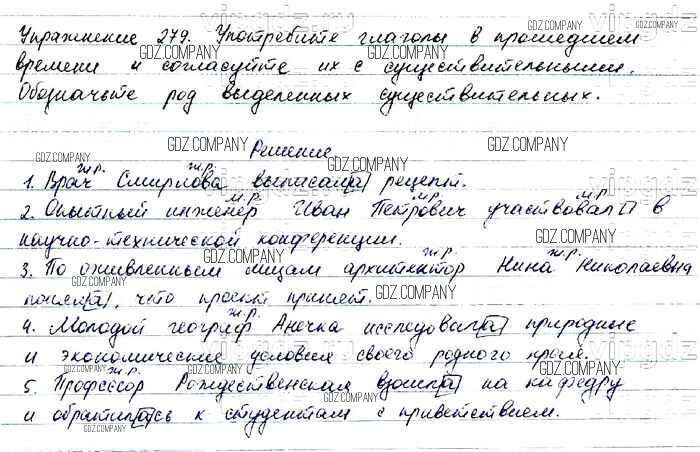 Упражнение 279. Употребите глаголы в прошедшем
времени и согласуйте их с существительными.
Обозначьте род выделенных существительных.
Решение
ж.р. ж.р.
1. Врач Смирнова выписала рецепт.
м.р. м.р.
2. Опытный инженер Иван Петрович участвовал в
научно-технической конференции.
ж.р. ж.р.
3. По оживленным лицам архитектор Нина Николаевна
поняла, что проект принят.
ж.р.
4. Молодой географ Анечка исследовала природные
и экономические условия своего родного края.
ж.р.
5. Профессор Рождественская взошла на кафедру
и обратилась к студентам с приветствием.
GDZ.COMPANY
vingdz.ru